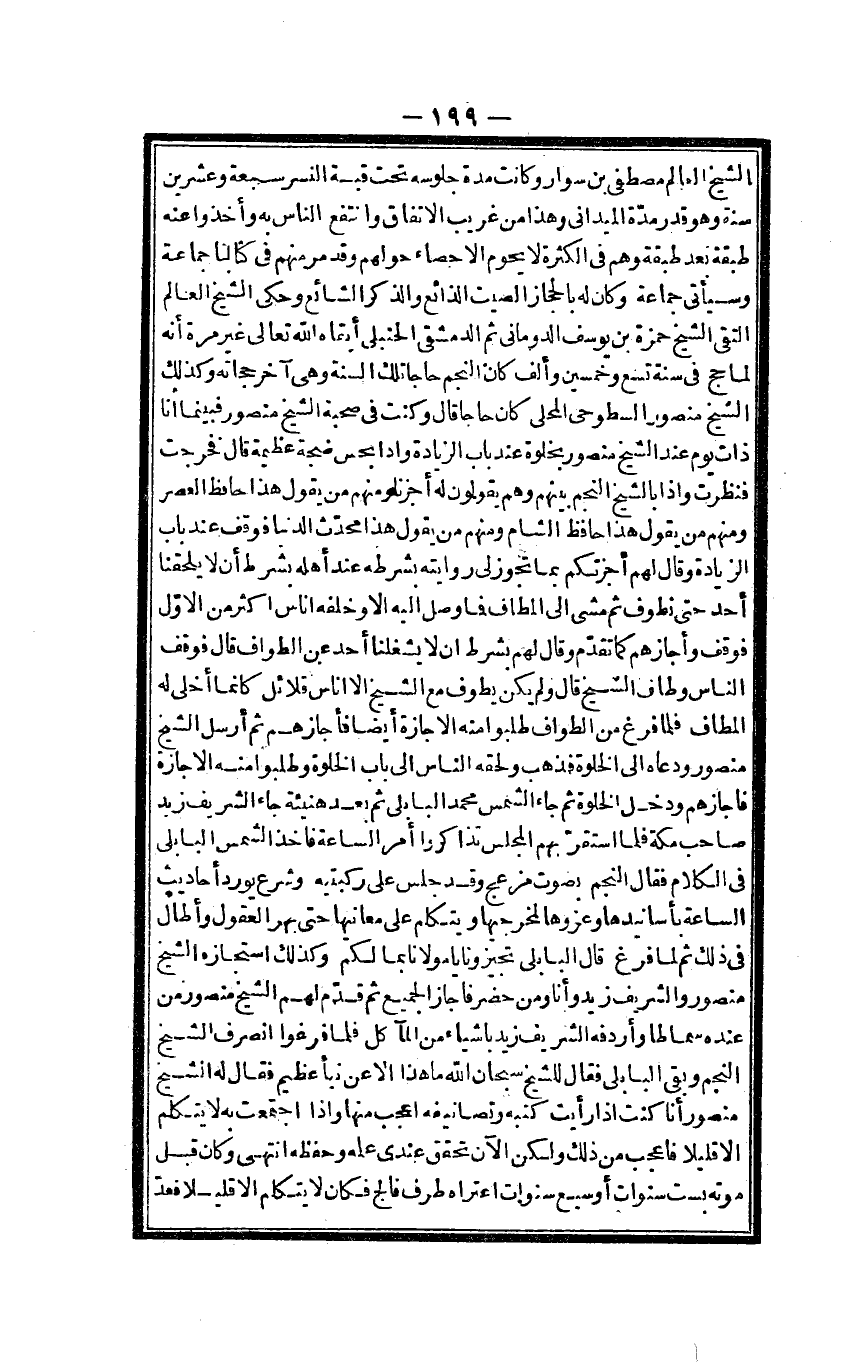 — ١٩٩ —
الشيخ العالم مصطفى بن سوار وكانت مدة جلوسه تحت قبة النسر سبعة وعشرين
سنة وهو قدر مدّة الميدانى وهذا من غريب الاتفاق وانتفع الناس به وأخذوا عنه
طبقة بعد طبقة وهم فى الكثرة لا يحوم الاحصاء حولهم وقد مر منهم فى كتابنا جماعة
وسيأتى جماعة وكان له بالحجاز الصيت الذائع والذكر الشائع وحكى الشيخ العالم
التقى الشيخ حمزة بن يوسف الدومانى ثم الدمشقى الحنبلى أبقاه الله تعالى غير مرة أنه
لما حج فى سنة تسع وخمسين وألف كان النجم حاجا تلك السنة وهى آخر حجاته وكذلك
الشيخ منصور السطوحى المحلى كان حاجا قال وكنت فى صحبة الشيخ منصور فبينما أنا
ذات يوم عند الشيخ منصور بخلوة عند باب الزيادة واذا بحس ضجة عظيمة قال فخرجت
فنظرت واذا بالشيخ النجم بينهم وهم يقولون له أجزنا ومنهم من يقول هذا حافظ العصر
ومنهم من يقول هذا حافظ الشام ومنهم من يقول هذا محدّث الدنيا فوقف عند باب
الزيادة وقال لهم أجزتكم بما تجوز لى روايته بشرطه عند أهله بشرط أن لا يلحقنا
أحد حتى نطوف ثم مشى الى المطاف فما وصل اليه الا وخلفه اناس اكثر من الاوّل
فوقف وأجازهم كما تقدّم وقال لهم بشرط ان لا يشغلنا أحد عن الطواف قال فوقف
الناس وطاف الشيخ قال ولم يكن يطوف مع الشيخ الا اناس قلائل كانما أخلى له
المطاف فلما فرغ من الطواف طلبوا منه الاجازة أيضا فأجازهم ثم أرسل الشيخ
منصور ودعاه الى الخلوة فذهب ولحقه الناس الى باب الخلوة وطلبوا منه الاجازة
فاجازهم ودخل الخلوة ثم جاء الشمس محمد البابلى ثم بعد هنيئة جاء الشريف زيد
صاحب مكة فلما استقرّ بهم المجلس تذاكروا أمر الساعة فاخذ الشمس البابلى
فى الكلام فقال النجم بصوت مزعج وقد جلس على ركبتيه وشرع يورد أحاديث
الساعة بأسانيدها وعزوها لمخرجيها ويتكلم على معانيها حتى بهر العقول وأطال
فى ذلك ثم لما فرغ قال البابلى تجيزونا يا مولانا بما لكم وكذلك استجازه الشيخ
منصور والشريف زيد وأنا ومن حضر فاجاز الجميع ثم قدّم لهم الشيخ منصور من
عنده سماطا وأردفه الشريف زيد باشياء من المآكل فلما فرغوا انصرف الشيخ
النجم وبقى البابلى فقال للشيخ سبحان الله ما هذا الا عن نبأ عظيم فقال له الشيخ
منصور أنا كنت اذا رأيت كتبه وتصانيفه اعجب منها واذا اجتمعت به لا يتكلم
الا قليلا فاعجب من ذلك ولكن الآن تحقق عندى علمه وحفظه انتهى وكان قبل
موته بست سنوات أوسبع سنوات اعتراه طرف فالج فكان لا يتكلم الا قليلا فعدّ